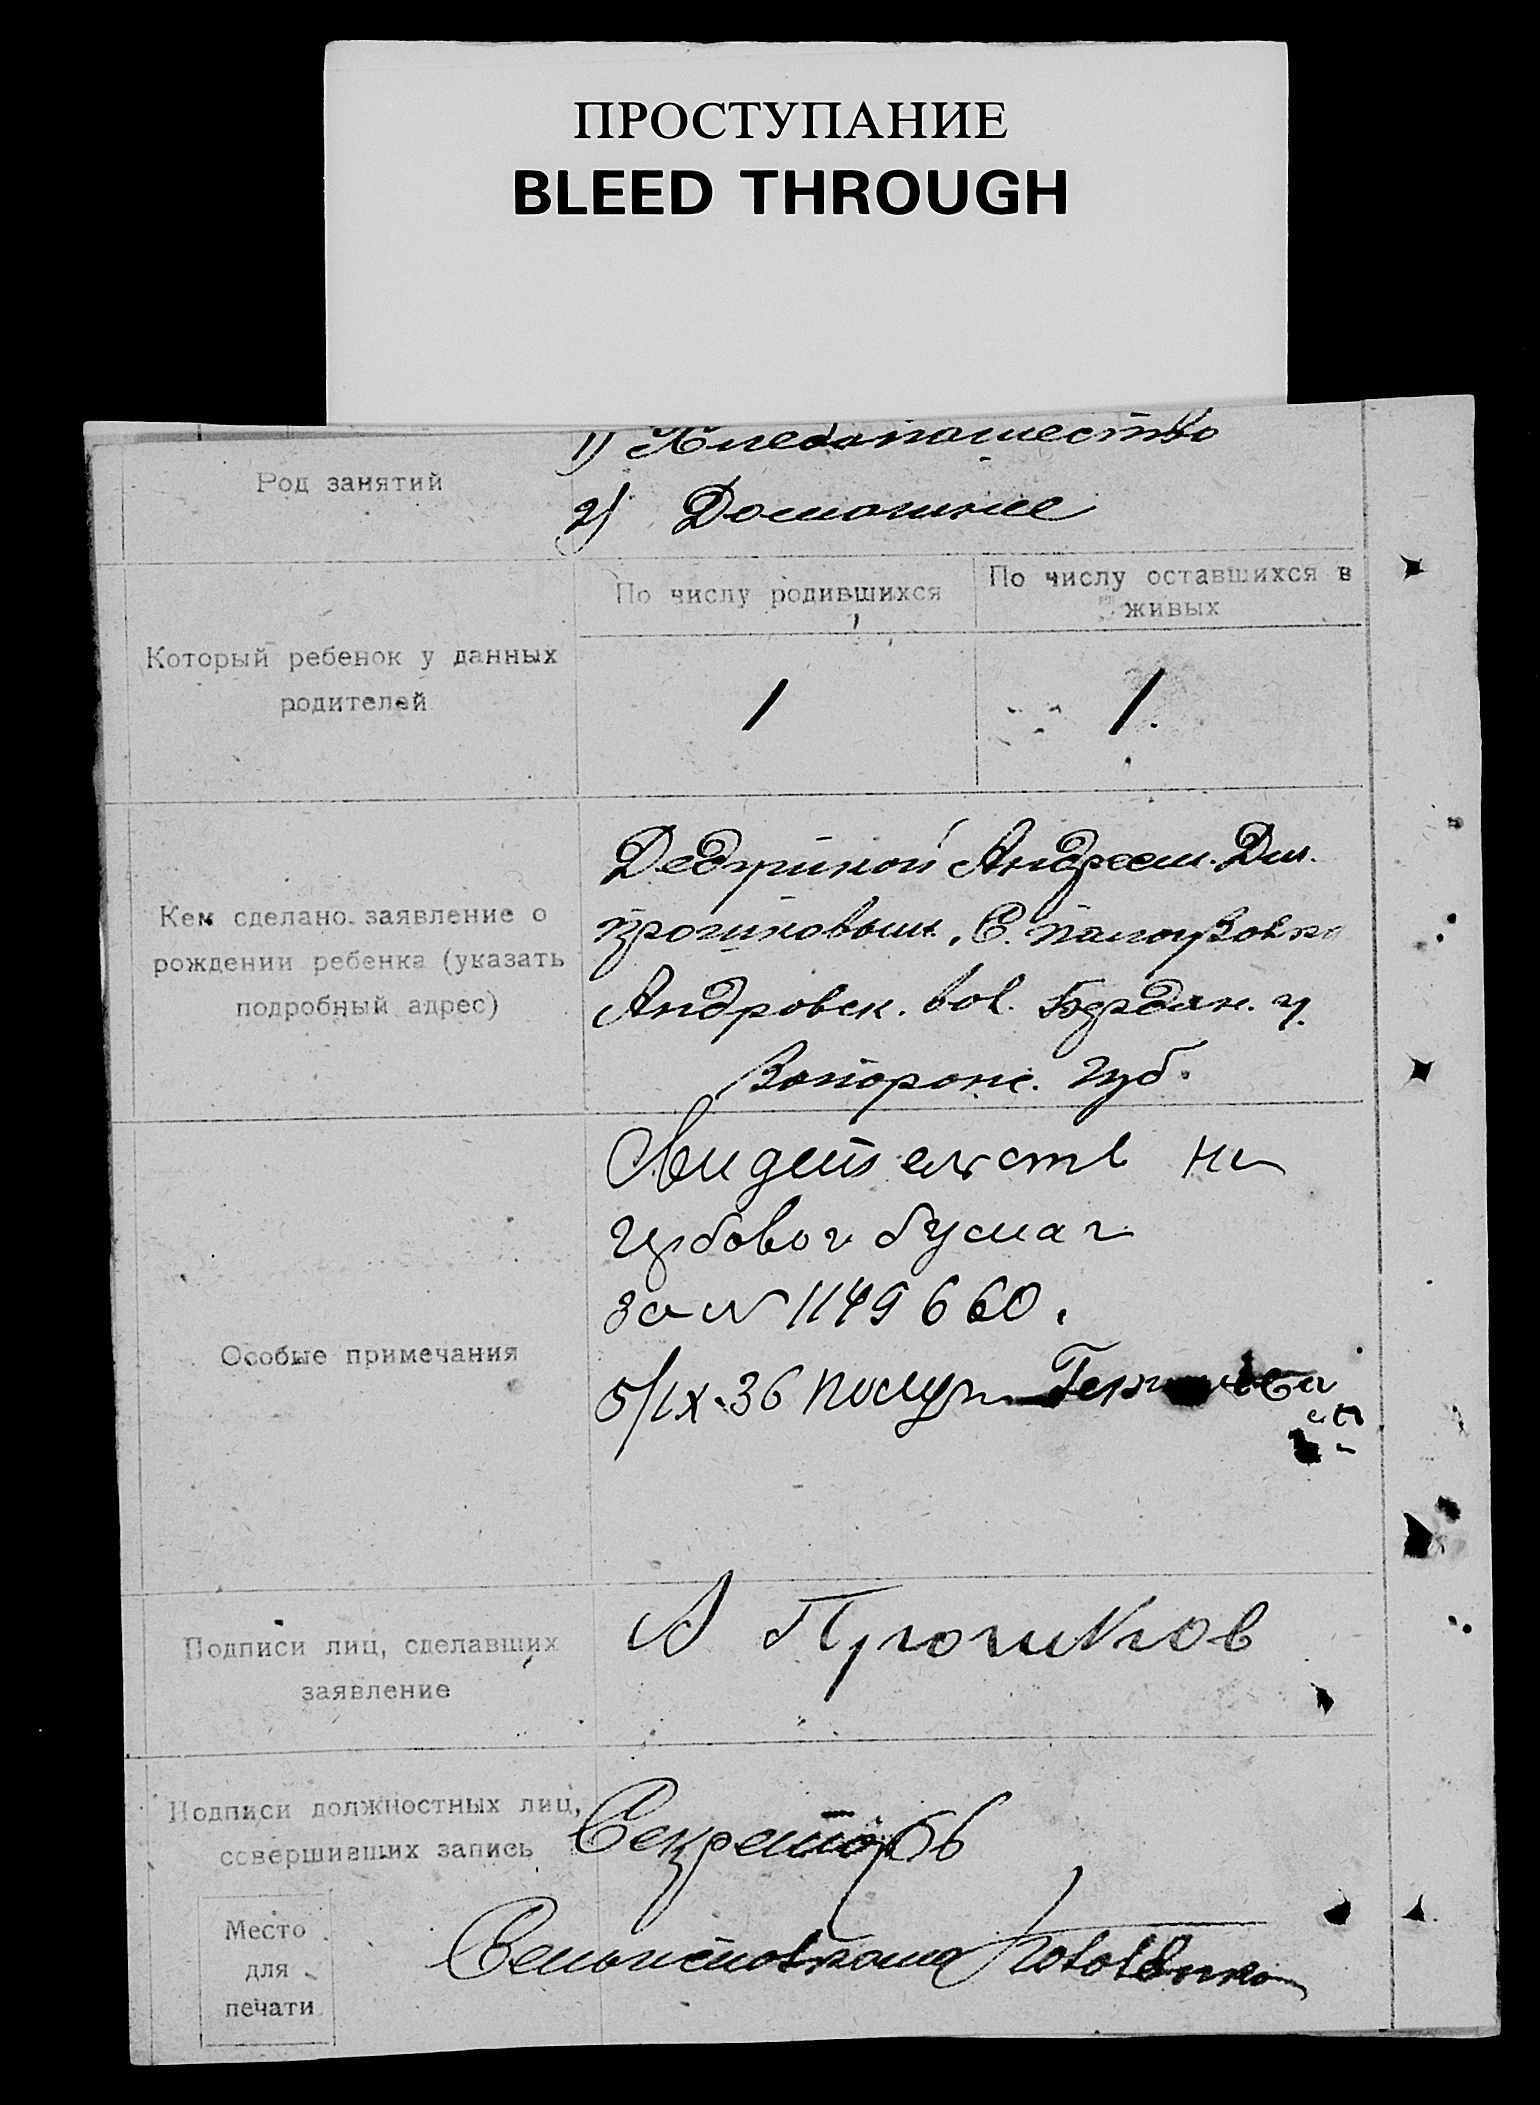 ПРОСТУПАНИЕ
BLEED THROUGH
Род занятий
1) Хлебопашество
2) Домашние
Который ребенок у данных
родителей
По числу родившихся
По числу оставшихся в
живых
1
1.
Кем сделано заявление о
рождении ребенка (указать
подробный адрес)
Дедушкой Андреем Дм.
Прошковым, С.
Андровск. вол. Бердян. у.
Запорож. Губ.
Особые примечания
на
гербовой бумаг
за № 1149660.
5/IX-36
Подписи лиц, сделавших
заявление
А Прошков
Подписи должностных лиц,
совершивших запись
Секретарь
Место
для
печати